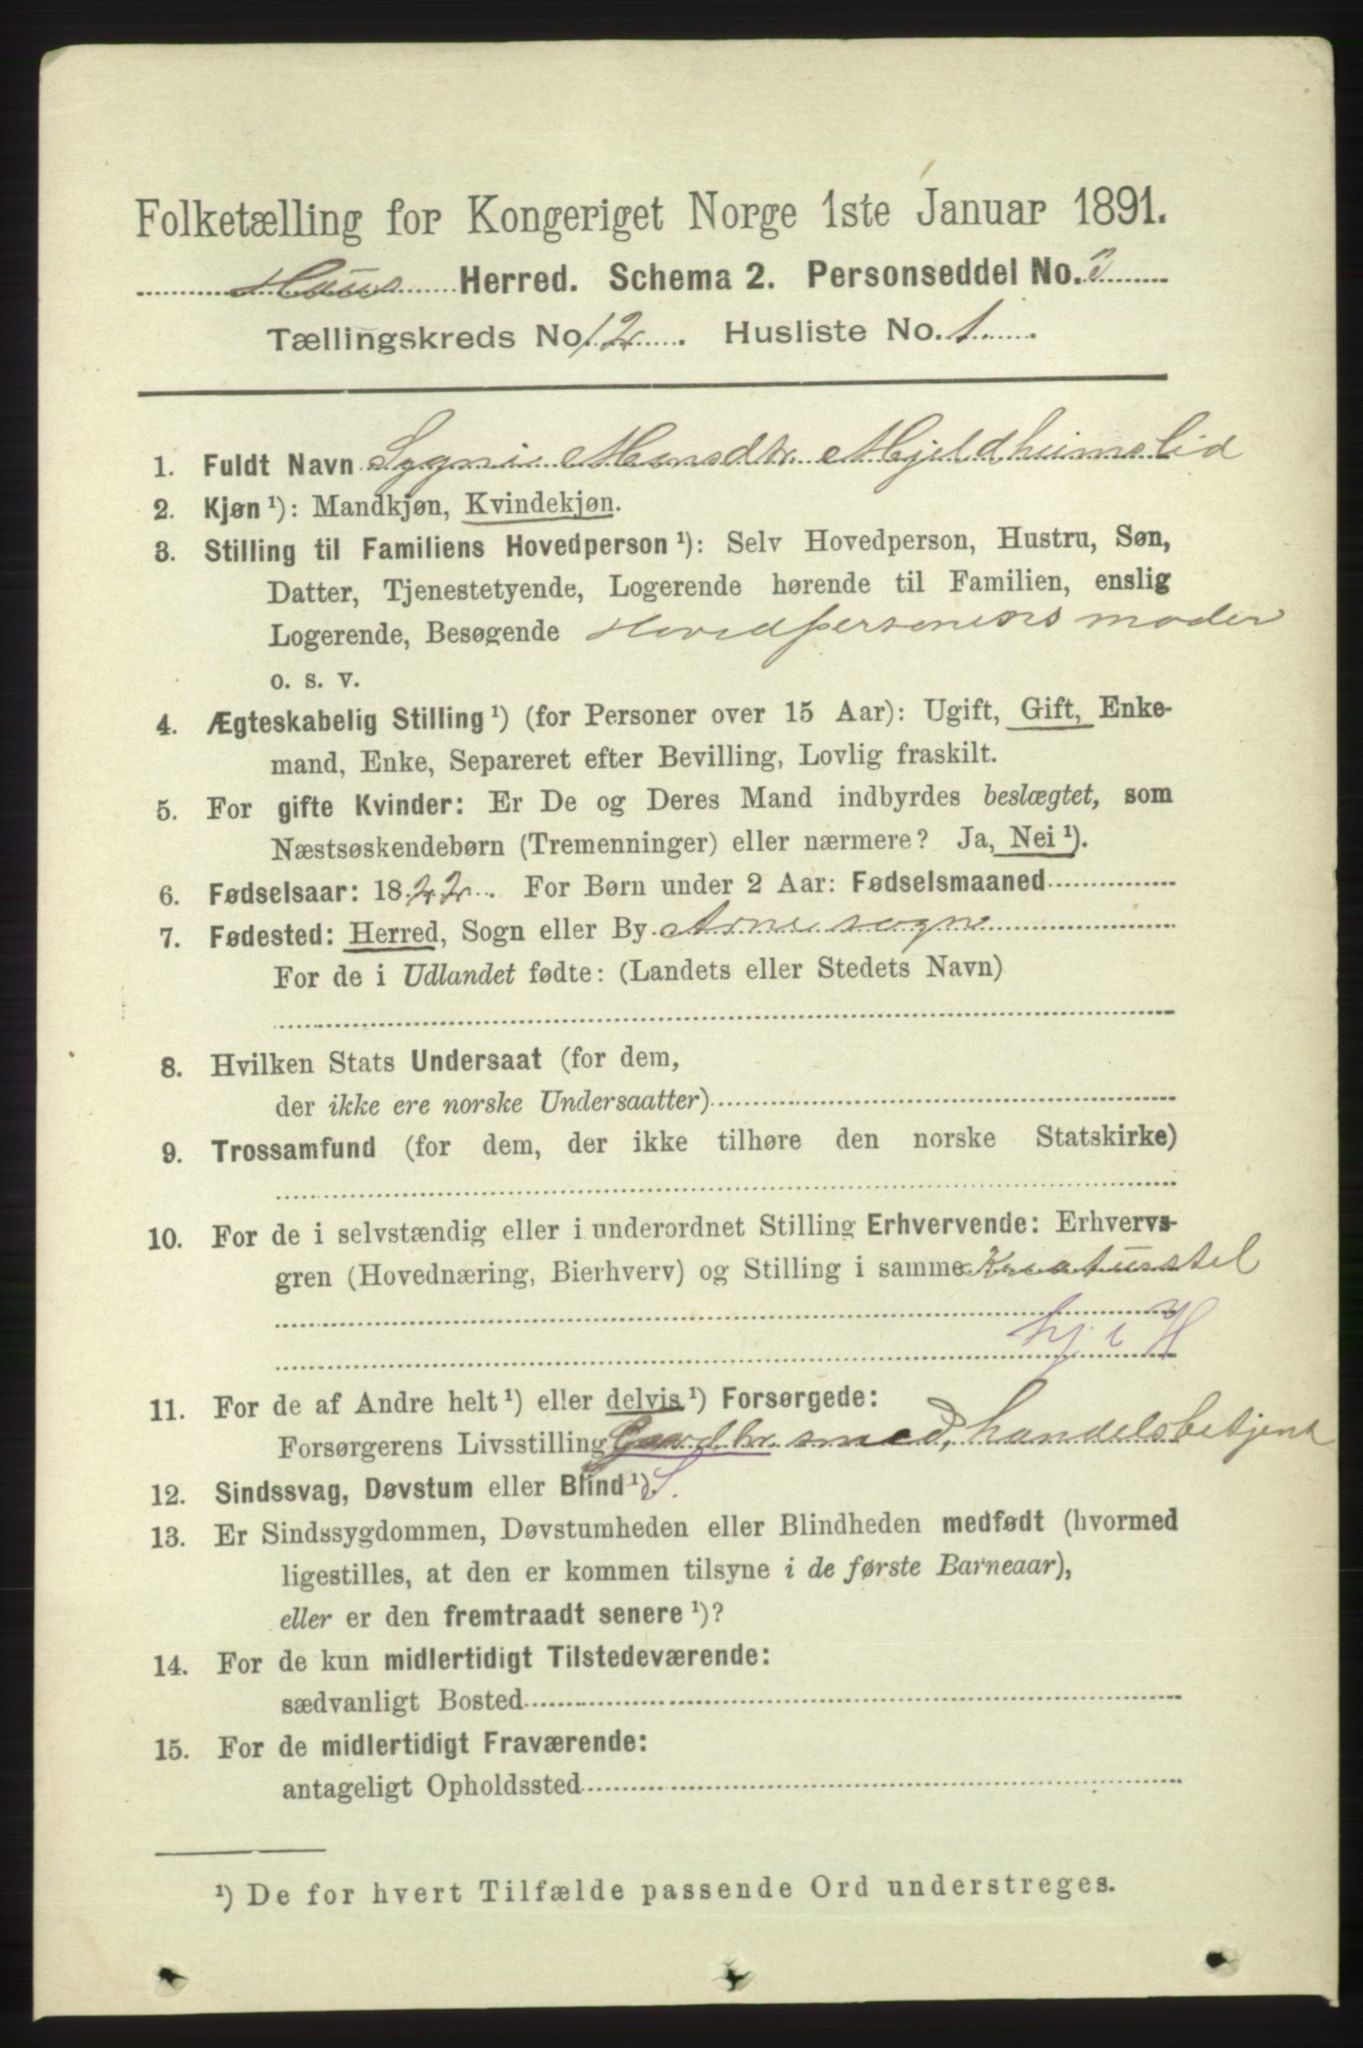 Folketælling for Kongeriget Norge 1ste Januar 1891.
Haus Herred. Schema 2. Personseddel No. 3
Tællingskreds No. 12. Husliste No. 1.
1. Fuldt Navn Sygni Monsdtr. Mjeldheimslid
2. Kjøn ¹): Mandkjøn, Kvindekjøn.
3. Stilling til Familiens Hovedperson ¹): Selv Hovedperson, Hustru, Søn,
Datter, Tjenestetyende, Logerende hørende til Familien, enslig
Logerende, Besøgende Hovedpersonens moder
o. s. v.
4. Ægteskabelig Stilling ¹) (for Personer over 15 Aar): Ugift, Gift, Enke-
mand, Enke, Separeret efter Bevilling, Lovlig fraskilt.
5. For gifte Kvinder: Er De og Deres Mand indbyrdes beslægtet, som
Næstsøskendebørn (Tremenninger) eller nærmere? Ja, Nei ¹).
6. Fødselsaar: 1822. For Børn under 2 Aar: Fødselsmaaned
7. Fødested: Herred, Sogn eller By Arne sogn
For de i Udlandet fødte: (Landets eller Stedets Navn)
8. Hvilken Stats Undersaat (for dem,
der ikke ere norske Undersaatter)
9. Trossamfund (for dem, der ikke tilhøre den norske Statskirke)
10. For de i selvstændig eller i underordnet Stilling Erhvervende: Erhvervs-
gren (Hovednæring, Bierhverv) og Stilling i samme Kreaturstel
hj. i H
11. For de af Andre helt ¹) eller delvis ¹) Forsørgede:
Forsørgerens Livsstilling Gaardbr. smed, handelsbetjent
12. Sindssvag, Døvstum eller Blind ¹). S.
13. Er Sindssygdommen, Døvstumheden eller Blindheden medfødt (hvormed
ligestilles, at den er kommen tilsyne i de første Barneaar),
eller er den fremtraadt senere ¹)?
14. For de kun midlertidigt Tilstedeværende:
sædvanligt Bosted
15. For de midlertidigt Fraværende:
antageligt Opholdssted
¹) De for hvert Tilfælde passende Ord understreges.